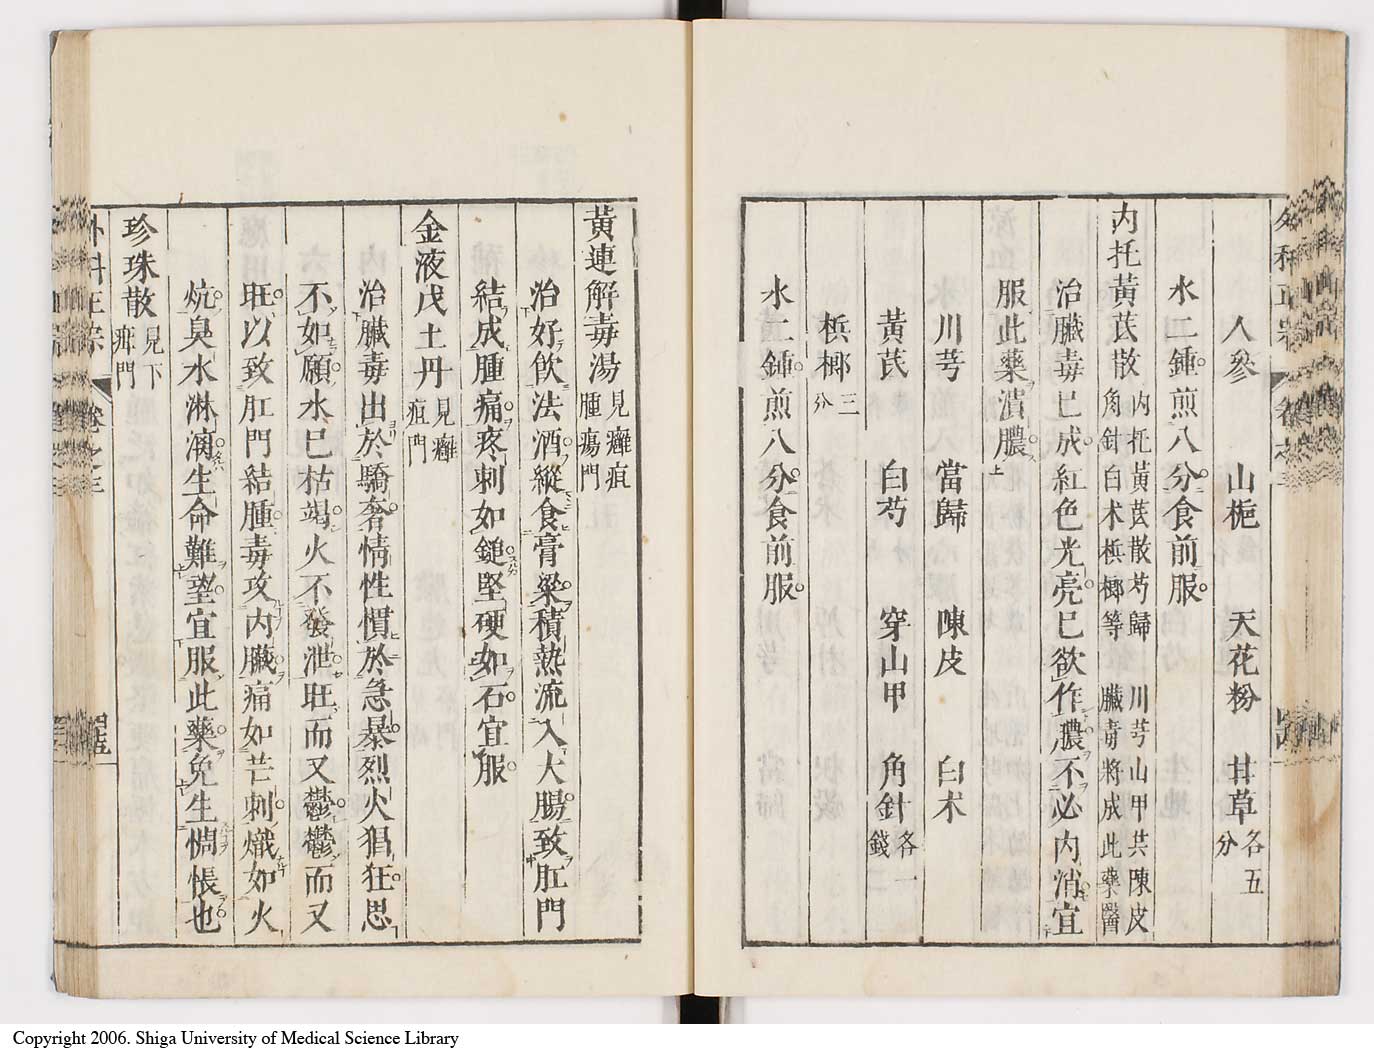 人參 山梔 天花粉 甘草各五分
水二鍾煎八分食前服
内托黃芪散内托黃芪散芍歸 川芎山甲共陳皮 角針白术梹榔等 臟毒將成此藥醫
治臟毒已成紅色光亮已欲作膿不必内消宜
服此藥潰膿
川芎 當歸 陳皮 白术
黃芪 白芍 穿山甲 角針各一錢
梹榔三分
水二鍾煎八分食前服
黃連解毒湯見癰疽腫瘍門
治好飲法酒縱食膏粱積熱流入大腸致肛門
結成腫痛疼刺如鎚堅硬如石宜服
金液戊土丹見癰疽門
治臟毒出於驕奢情性慣於急暴烈火猖狂思
不如願水已枯竭火不發泄旺而又鬱鬱而又
旺以致肛門結腫毒攻内臟痛如芒刺熾如火
炕臭水淋漓生命難望宜服此藥免生惆悵也
珍珠散見下疳門
外科正宗 卷之三